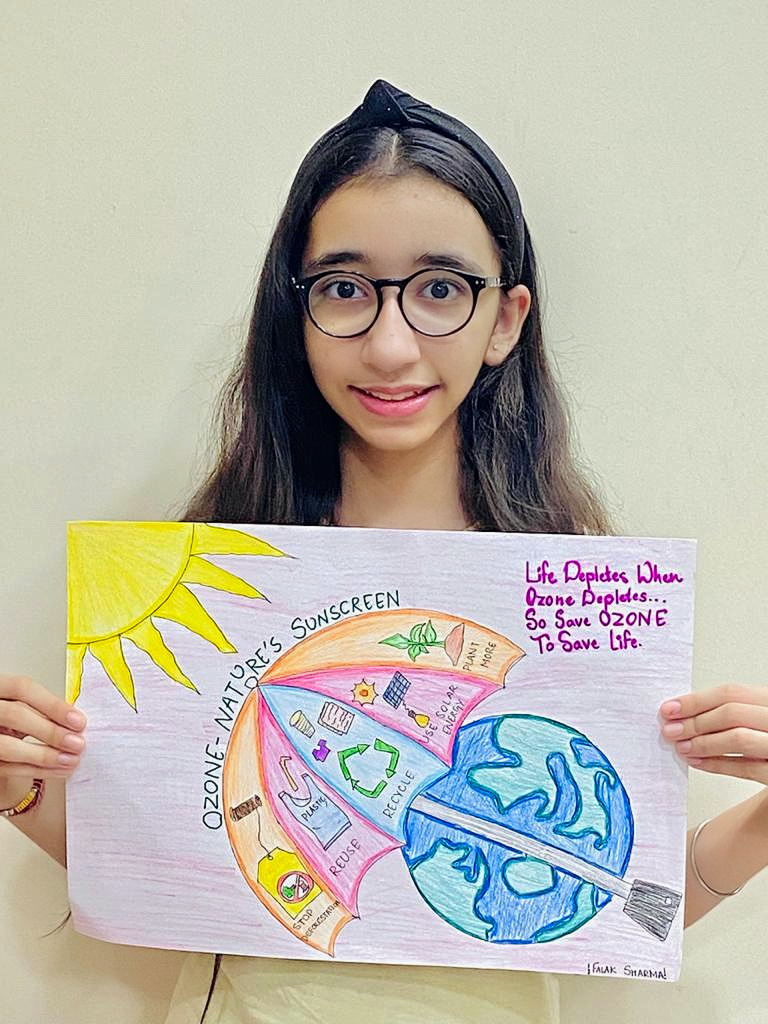 Life Depletes When
Ozone Depletes...
So Save OZONE
To Save Life.
OZONE- NATURE'S SUNSCREEN
PLANT
MORE
USE SOLAR
ENERGY
RECYCLE
PLASTIC
REUSE
STOP
DEFORESTATION
!FALAK SHARMA!